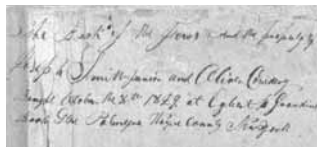 The Book of the Jews And the property of
Joseph Smith Junior and Oliver Cowdery
Bought October the 8th 1829 at Egbert B Grandins
Book Store Palmyra Wayne County New York